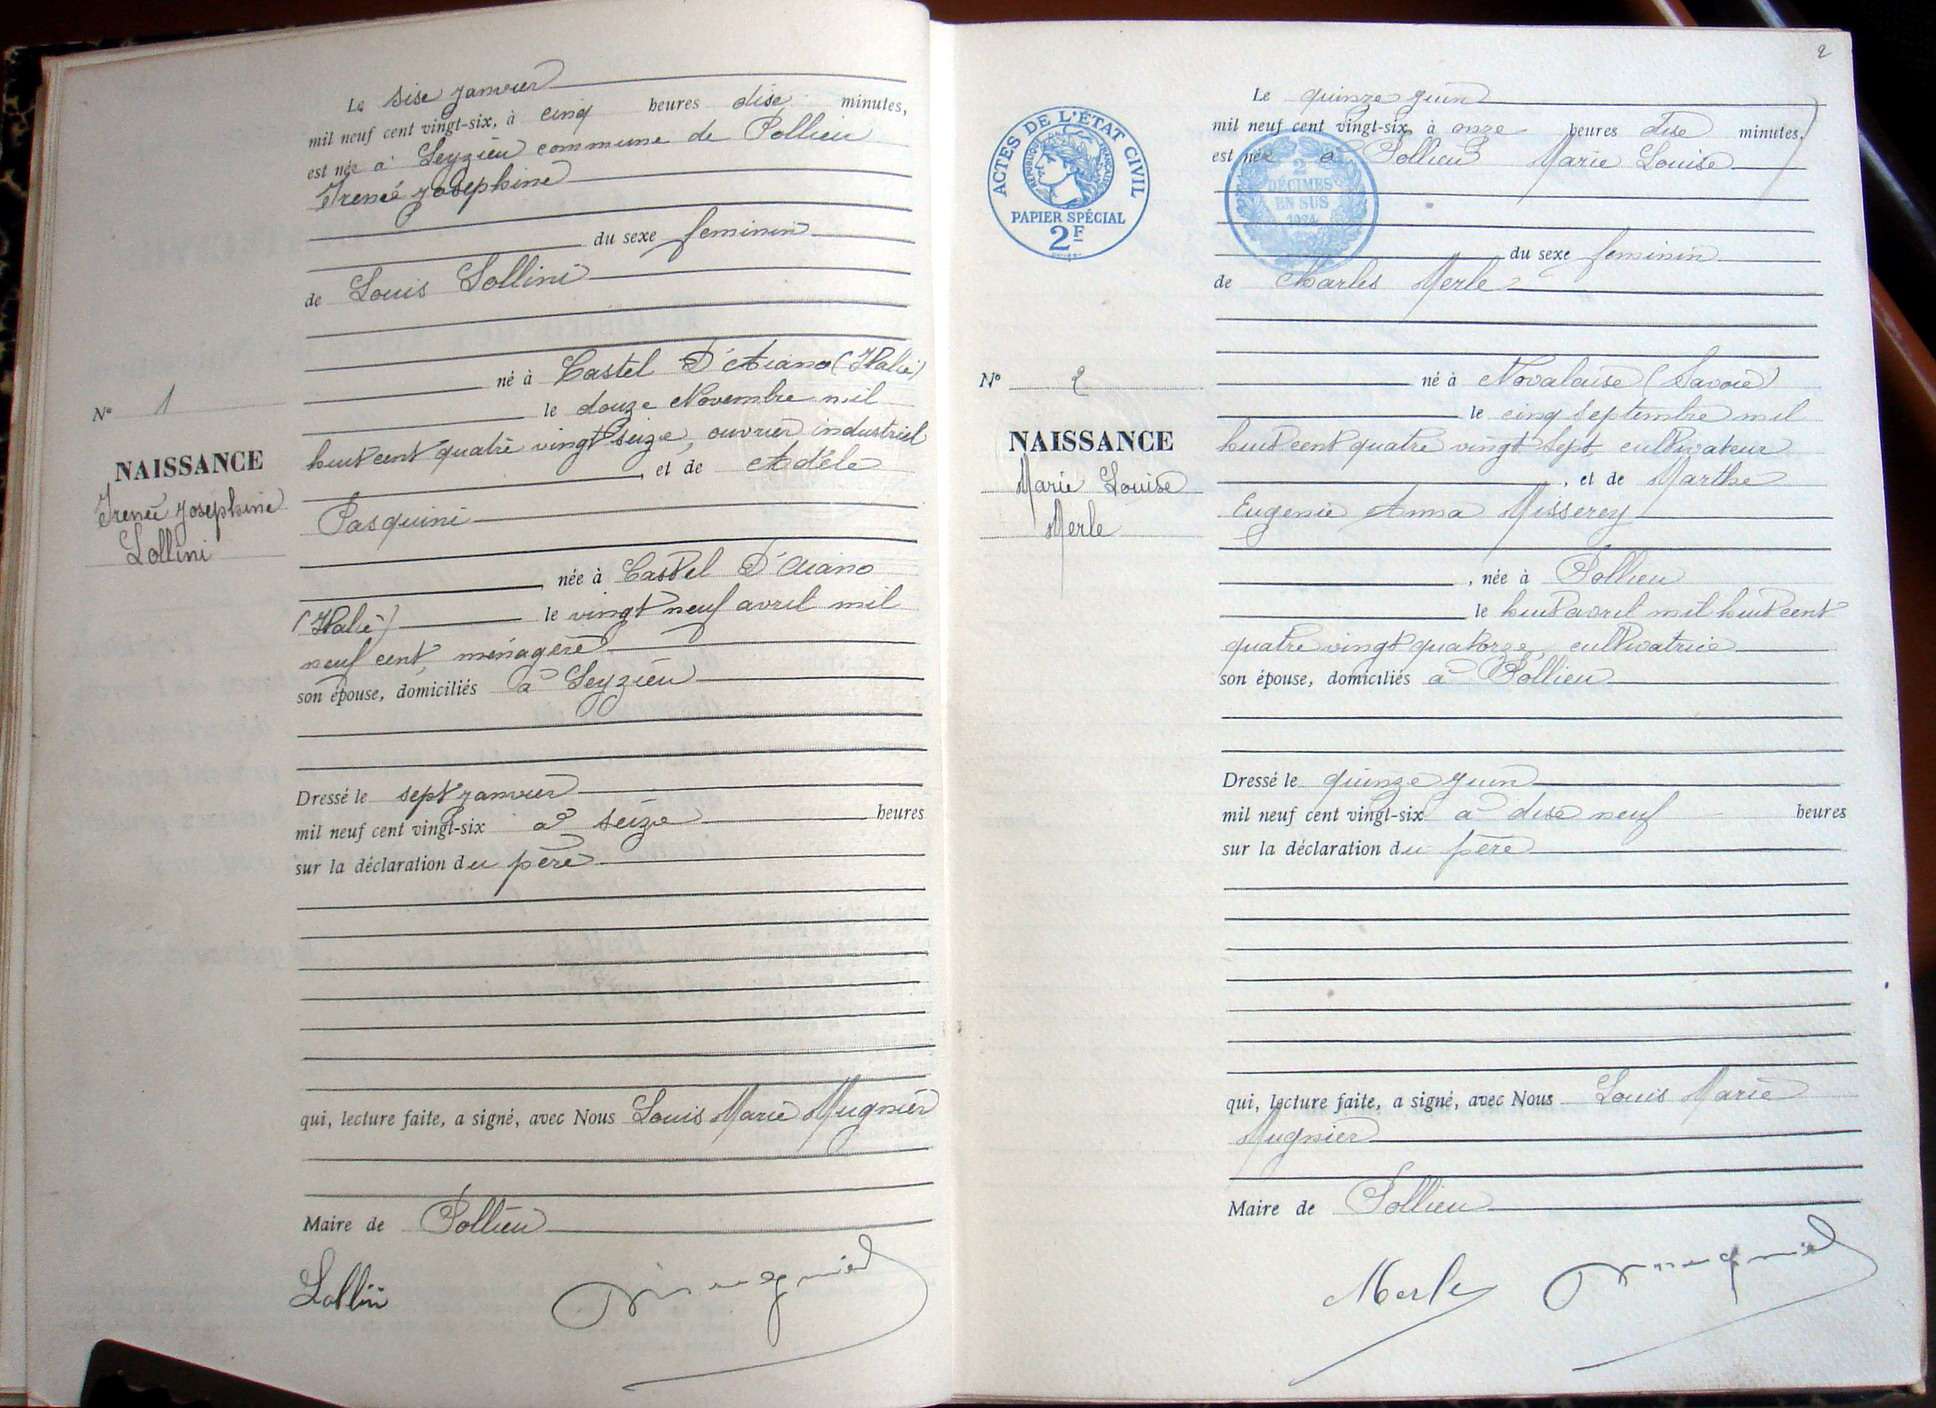 Le sise janvier
mil neuf cent vingt-six, à cinq heures dise minutes,
est née à Leyzieu commune de Pollieu
Irenée Josephine
du sexe feminin
de Louis Lollini
né à Castel D'Aiano (Italie)
N° 1
le douze Novembre mil
huit cent quatre vingt seize, ouvrier industriel
NAISSANCE
, et de Adèle
Irenée Josephine
Pasquini
Lollini
née à Castel D'Aiano
(Italie) le vingt neuf avril mil
neuf cent, ménagère
son épouse, domiciliés à Leyzieu
Dressé le sept janvier
mil neuf cent vingt-six à seize heures
sur la déclaration du père
qui, lecture faite, a signé, avec Nous Louis Marie Mugnier
Maire de Pollieu
Lollini
Mugnier
2
Le quinze juin
mil neuf cent vingt-six à onze heures dise minutes,
est née à Pollieu Marie Louise
ACTES DE L'ÉTAT CIVIL
RÉPUBLIQUE FRANÇAISE
PAPIER SPÉCIAL
2F
2
DÉCIMES
EN SUS
1924
du sexe feminin
de Charles Merle
N° 2
né à Novalaise (Savoie)
le cinq Septembre mil
NAISSANCE
huit cent quatre vingt Sept, cultivateur
Marie Louise
, et de Marthe
Merle
Eugenie Anna Misserey
, née à Pollieu
le huit avril mil huit cent
quatre vingt quatorze, cultivatrice
son épouse, domiciliés à Pollieu
Dressé le quinze juin
mil neuf cent vingt-six à dise neuf heures
sur la déclaration du père
qui, lecture faite, a signé, avec Nous Louis Marie
Mugnier
Maire de Pollieu
Merle
Mugnier